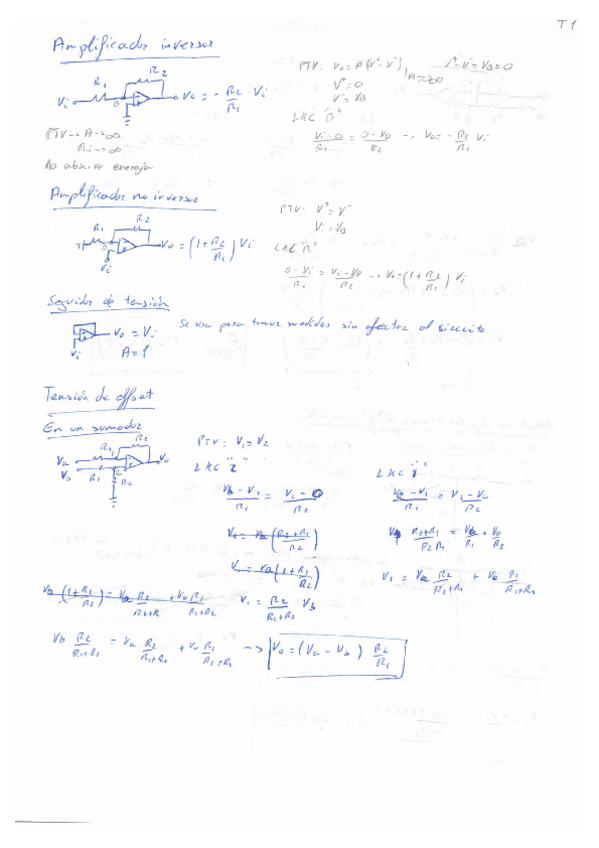 T1
Amplificador inversor
R1 R2
Vi B Vo = - R2/R1 · Vi
PTV: Vo = A(V+ - V-)
V+ = V- = VB = 0
V+ = 0
V- = VB
LKC "B"
(Vi - 0)/R1 = (0 - Vo)/R2 → Vo = - R2/R1 Vi
PTV → A → ∞
Ri → ∞
No absorve energía
Amplificador no inversor
R1 R2
Vi
Vo = (1 + R2/R1) Vi
PTV: V+ = V-
Vi = VB
LKC "B"
(0 - Vi)/R1 = (Vi - Vo)/R2 → Vo = (1 + R2/R1) Vi
Seguidor de tensión
Vo = Vi
Vi A = 1
Se usa para tomar medidas sin afectar al circuito
Tensión de offset
En un sumador
R1 R2
Va
Vo
R1
R2
PTV: V1 = V2
LKC "2"
LKC "1"
(Vb - V1)/R1 = (V1 - 0)/R2
(Va - V1)/R1 = (V1 - Vo)/R2
V1 = Va ((R2+R1)/R2)
V1 (R2+R1)/(R2 R1) = Va/R1 + Vo/R2
V1 = Va (1 + R1/R2)
V1 = Va R2/(R2+R1) + Vo R1/(R1+R2)
Va (1 + R1/R2) = Va R2/(R2+R1) + Vo R1/(R1+R2)
V1 = R2/(R1+R2) Vb
Vb R2/(R1+R2) = Va R2/(R1+R2) + Vo R1/(R2+R1) → Vo = (Va - Vb) R2/R1